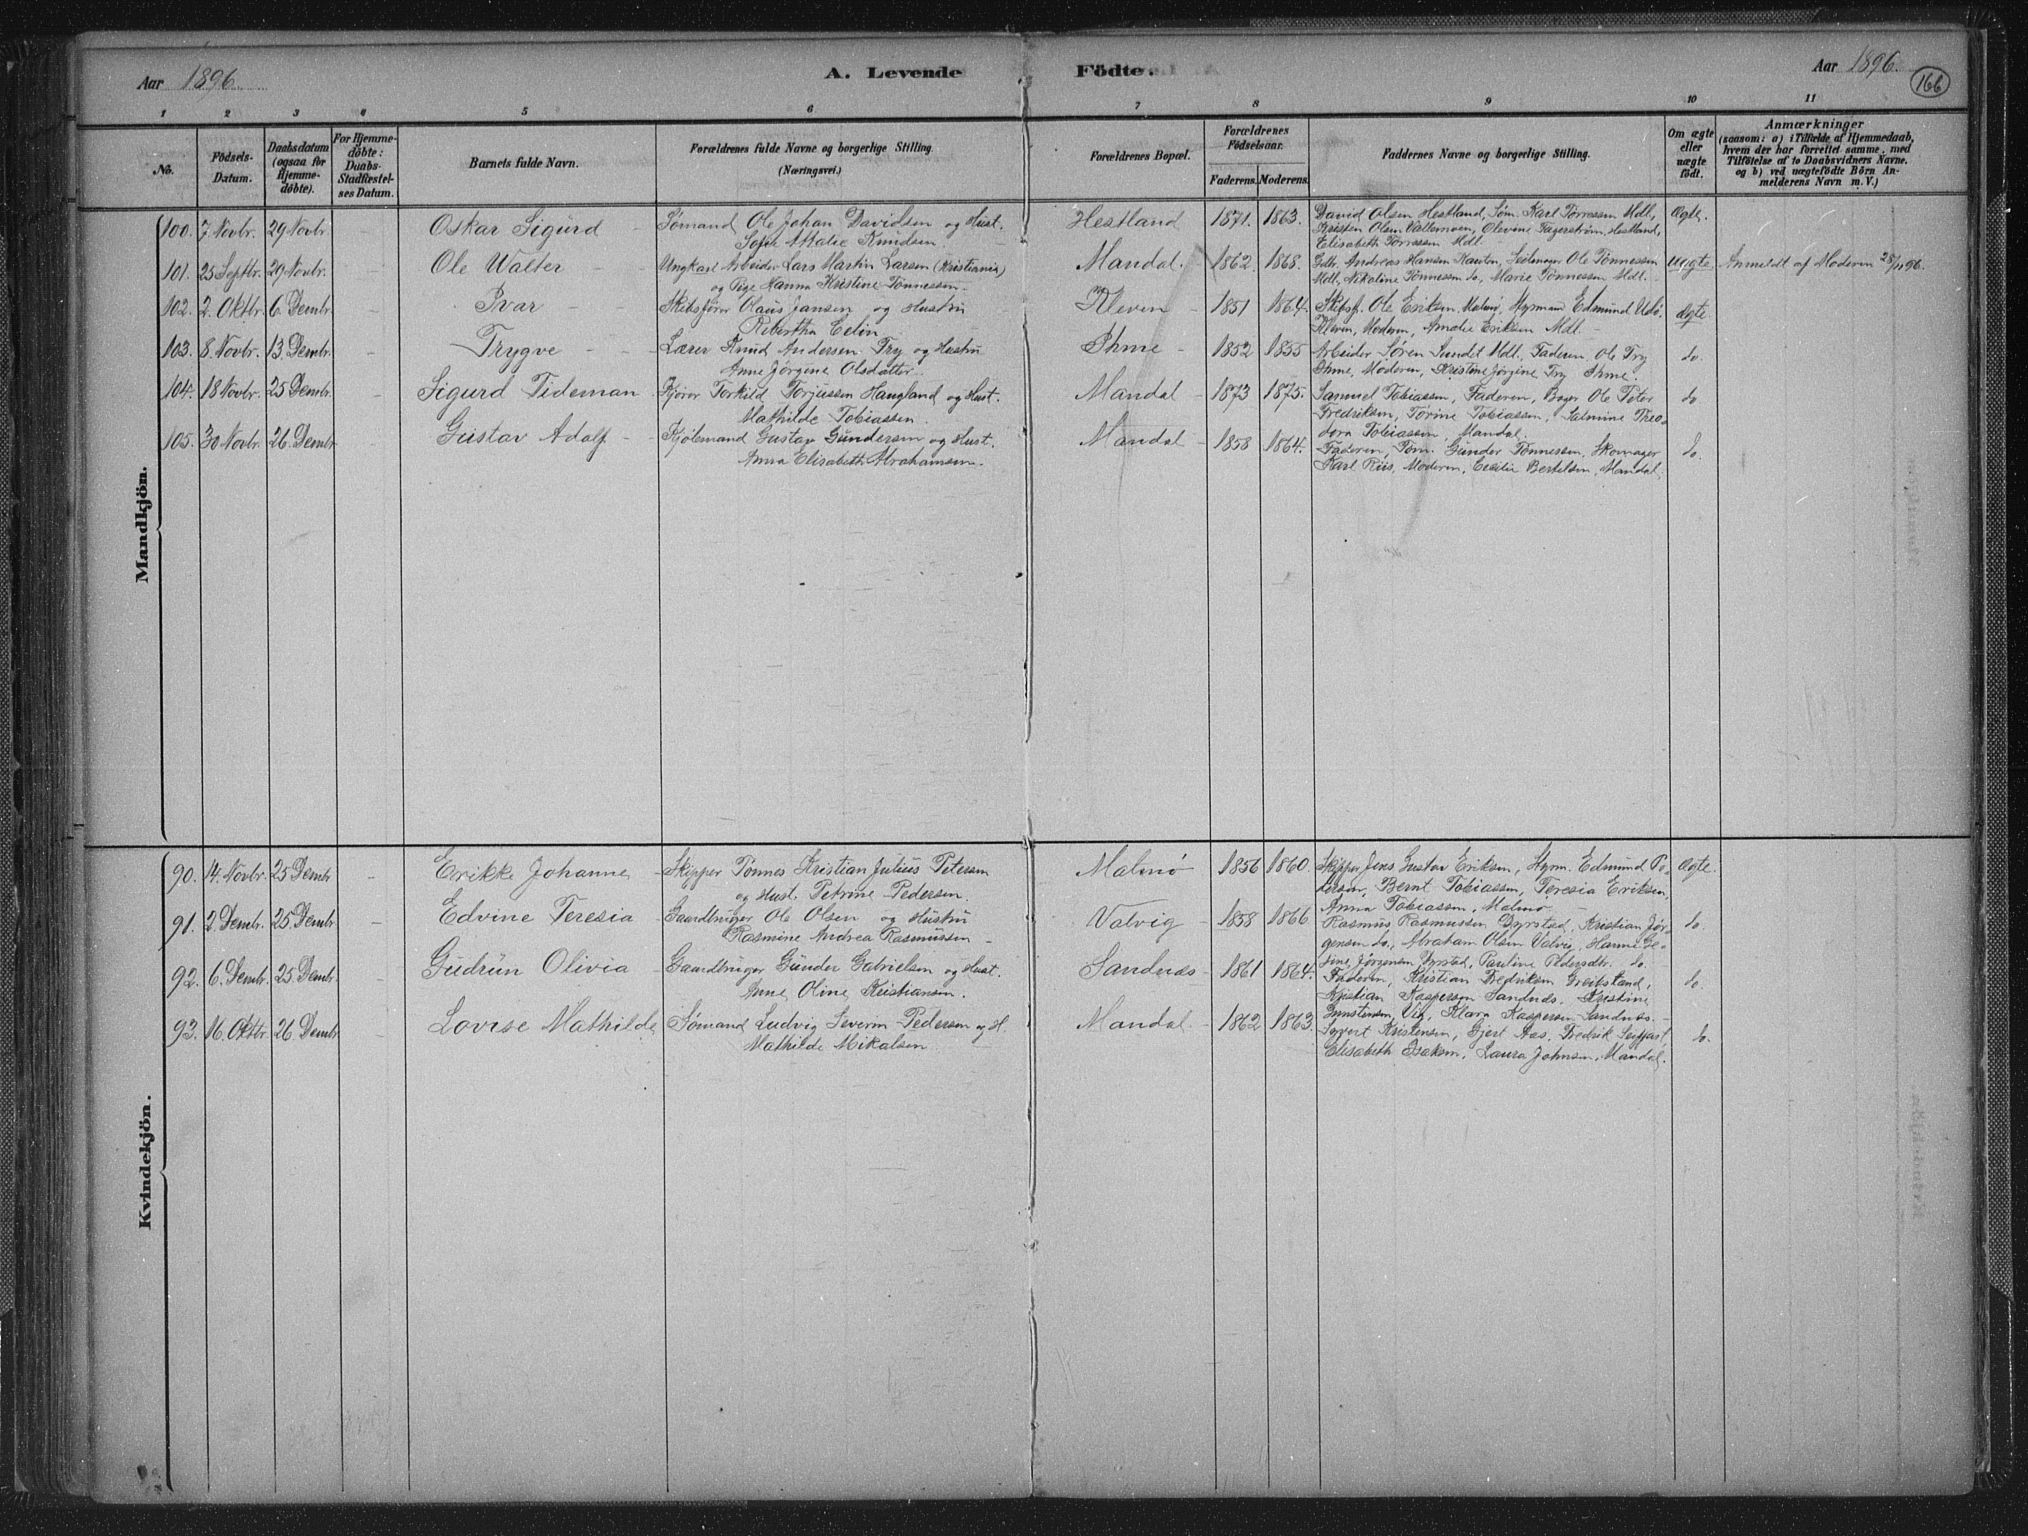 Aar 1896. A. Levende Födte. Aar 1896. 166
1 2 3 4 5 6 7 8 9 10 11
No. Födsels-Datum. Daabsdatum (ogsaa for Hjemmedöbte). For Hjemmedöbte: Daabs Stadfæstelses Datum. Barnets fulde Navn. Forældrenes fulde Navne og borgerlige Stilling. (Næringsvei.) Forældrenes Bopæl. Forældrenes Födselsaar. Faderens. Moderens. Faddernes Navne og borgerlige Stilling. Om ægte eller uægte födt. Anmærkninger (saasom: a) i Tilfælde af Hjemmedaab, hvem der har forrettet samme, med Tilföielse af to Daabsvidners Navne, og b) ved uægtefödte Börn Anmelderens Navn m. V.)
Mandkjön.
100. 7 Novbr. 29 Novbr. Oskar Sigurd Sømand Ole Johan Davidsen og Hust. Hestland 1871. 1863. David Olsen Hestland, Søm. Karl Tørressen Mdl., Ægte.
Sofie Attalie Knudsen. Kristen Olsen Valtemoen, Olevine Fagerstrøm, Hestland,
Elisabeth Tørressen Mdl.
101. 25 Septbr. 29 Novbr. Ole Walter Ungkarl Arbeider Lars Martin Larsen (Kristiania) Mandal. 1862 1868. Andreas Hansen Seilmager Ole Tønnessen Uægte Anmeldt af Moderen 28/11 96.
og Pige Hanna Kristine Tønnessen. Mdl., Nikoline Tønnessen do, Marie Tønnessen Mdl.
102. 2. Oktbr. 6. Dembr. Ivar Skibsfører Olaus Jansen og Hustru Kleven 1851 1864. Skibsf. Ole Eriksen Malmø, Styrmand Edmund Udø, Ægte
Rebertha Eelin Kleven, Moderen, Amalie Eriksen Mdl.
103. 8. Novbr. 13. Dembr. Trygve Lærer Knud Andersen Try og Hustru Øhme 1852 1855 Arbeider Søren Sundet Mdl., Faderen, Ole Try do.
Anne Jørgine Olsdatter. Øhme, Moderen, Kristine Jørgine Try Øhme.
104. 18 Novbr. 25 Dembr. Sigurd Tideman Torkild Torjussen Haugland og Hust. Mandal 1873 1875. Samuel Tobiassen, Faderen, Bager Ole Peter do
Mathilde Tobiassen. Fredriksen, Torine Tobiassen, Salmine Theo-
dora Tobiassen, Mandal.
105. 30 Novbr. 26. Dembr Gustav Adolf Gustav Gundersen og Hust. Mandal 1858 1864. Faderen, Tøm. Gunder Tønnessen, Skomager do.
Anna Elisabeth Abrahamsen. Karl Riis, Moderen, Cecilie Bertelsen, Mandal.
Kvindekjön.
90. 14. Novbr. 25 Dembr Erikke Johanne Skipper Tønnes Kristian Julius Petersen Malmø 1856 1860. Skipper Jens Gustav Eriksen, Styrm. Edmund Pe- Ægte.
og Hust. Petrine Pedersen. tersen, Bernt Tobiassen, Teresia Eriksen,
Anna Tobiassen, Malmø
91. 2. Dembr. 25. Dembr. Edvine Teresia Gaardbruger Ole Olsen og Hustru Valvig 1858 1866 Rasmus Rasmussen Dyrstad, Kristian Jør- do.
Rasmine Andrea Rasmussen gensen do., Abraham Olsen Valvig, Hanne Ge-
sine Jørgensen Dyrstad, Pauline Pedersdtr. do.
92. 6. Dembr. 25 Dembr Gudrun Olivia Gaardbruger Gunder Gabrielsen og Hust. Sandnæs 1861 1864. Faderen, Kristian Fredriksen Greibsland, do.
Anne Oline Kristiansen. Kristian Kaspersen Sandnæs, Kristine
Vig, Klara Kaspersen Sandnæs.
93. 16. Oktbr. 26 Dembr Lovise Mathilde Sømand Ludvig Severin Pedersen og H. Mandal. 1862 1863. Syvert Kristensen, Gjert Aas, Fredrik do.
Mathilde Mikalsen Elisabeth Isaksen, Laura Johnsen, Mandal.